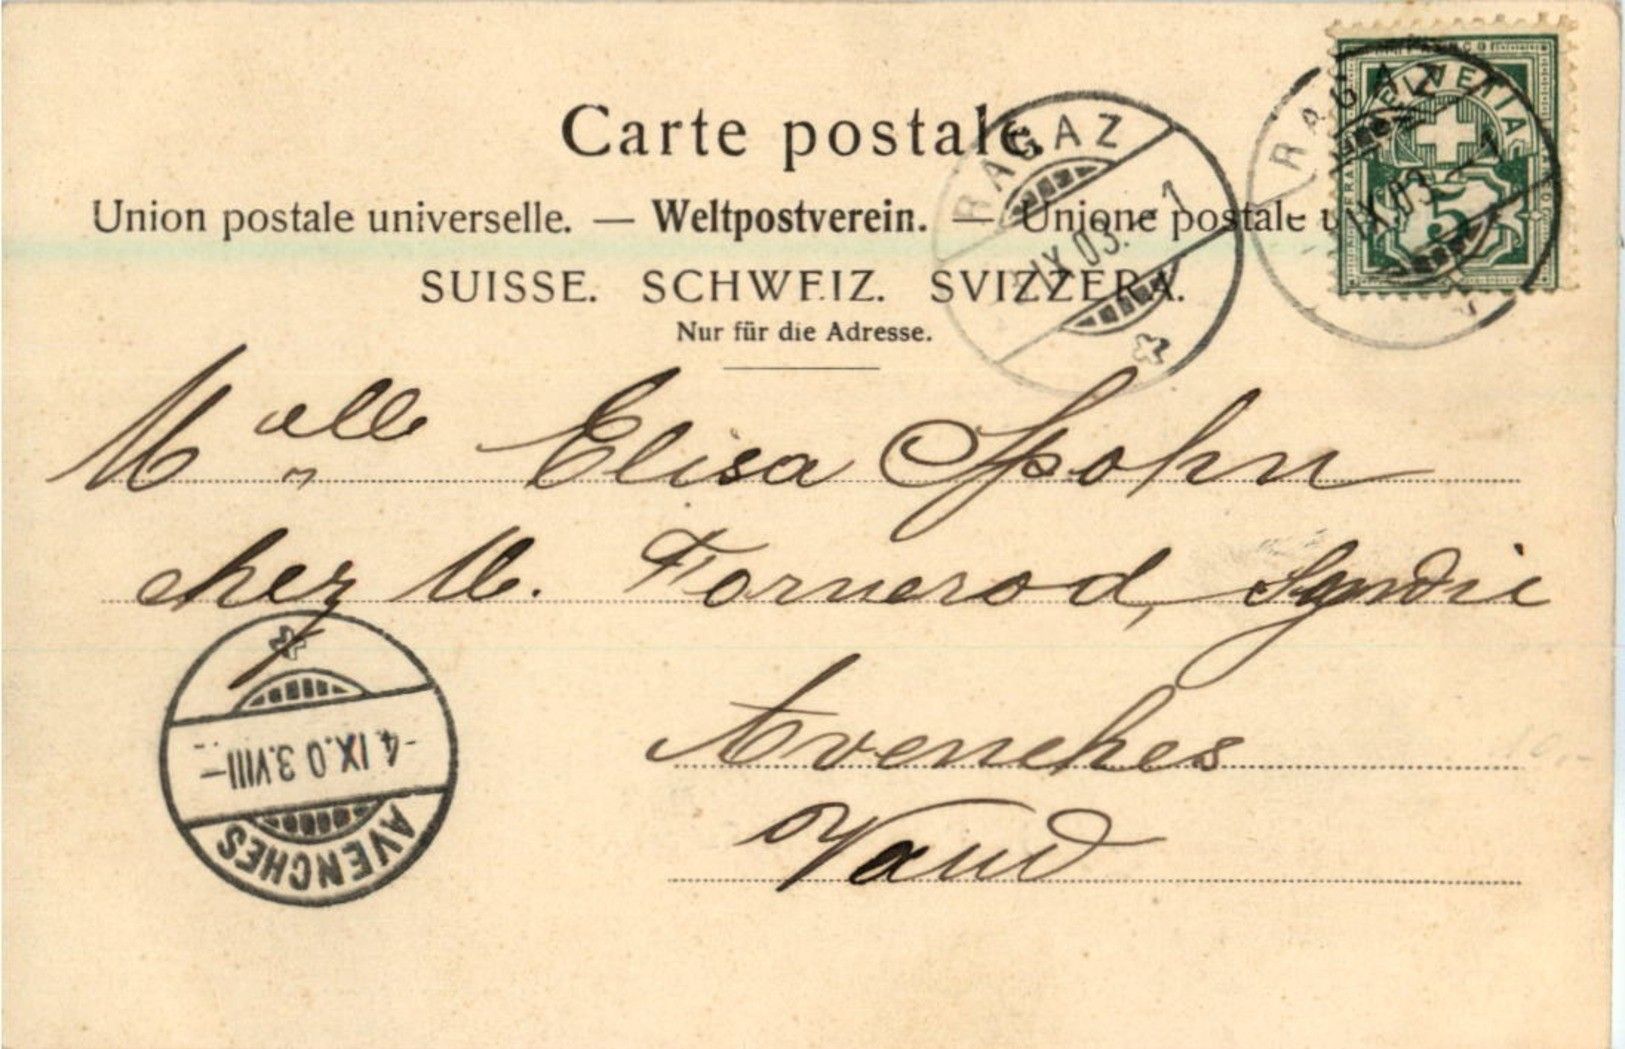 Carte postale.
Union postale universelle. — Weltpostverein. — Unione postale
SUISSE. SCHWEIZ. SVIZZERA.
Nur für die Adresse.
RAGAZ
IX.03.-1
RAGAZ
IX.03.-1
FRANCO
HELVETIA
5
Melle Elisa Spohn
chez M. Fornerod, Syndic
Avenches
Vaud
-4.IX.03.VIII-
AVENCHES